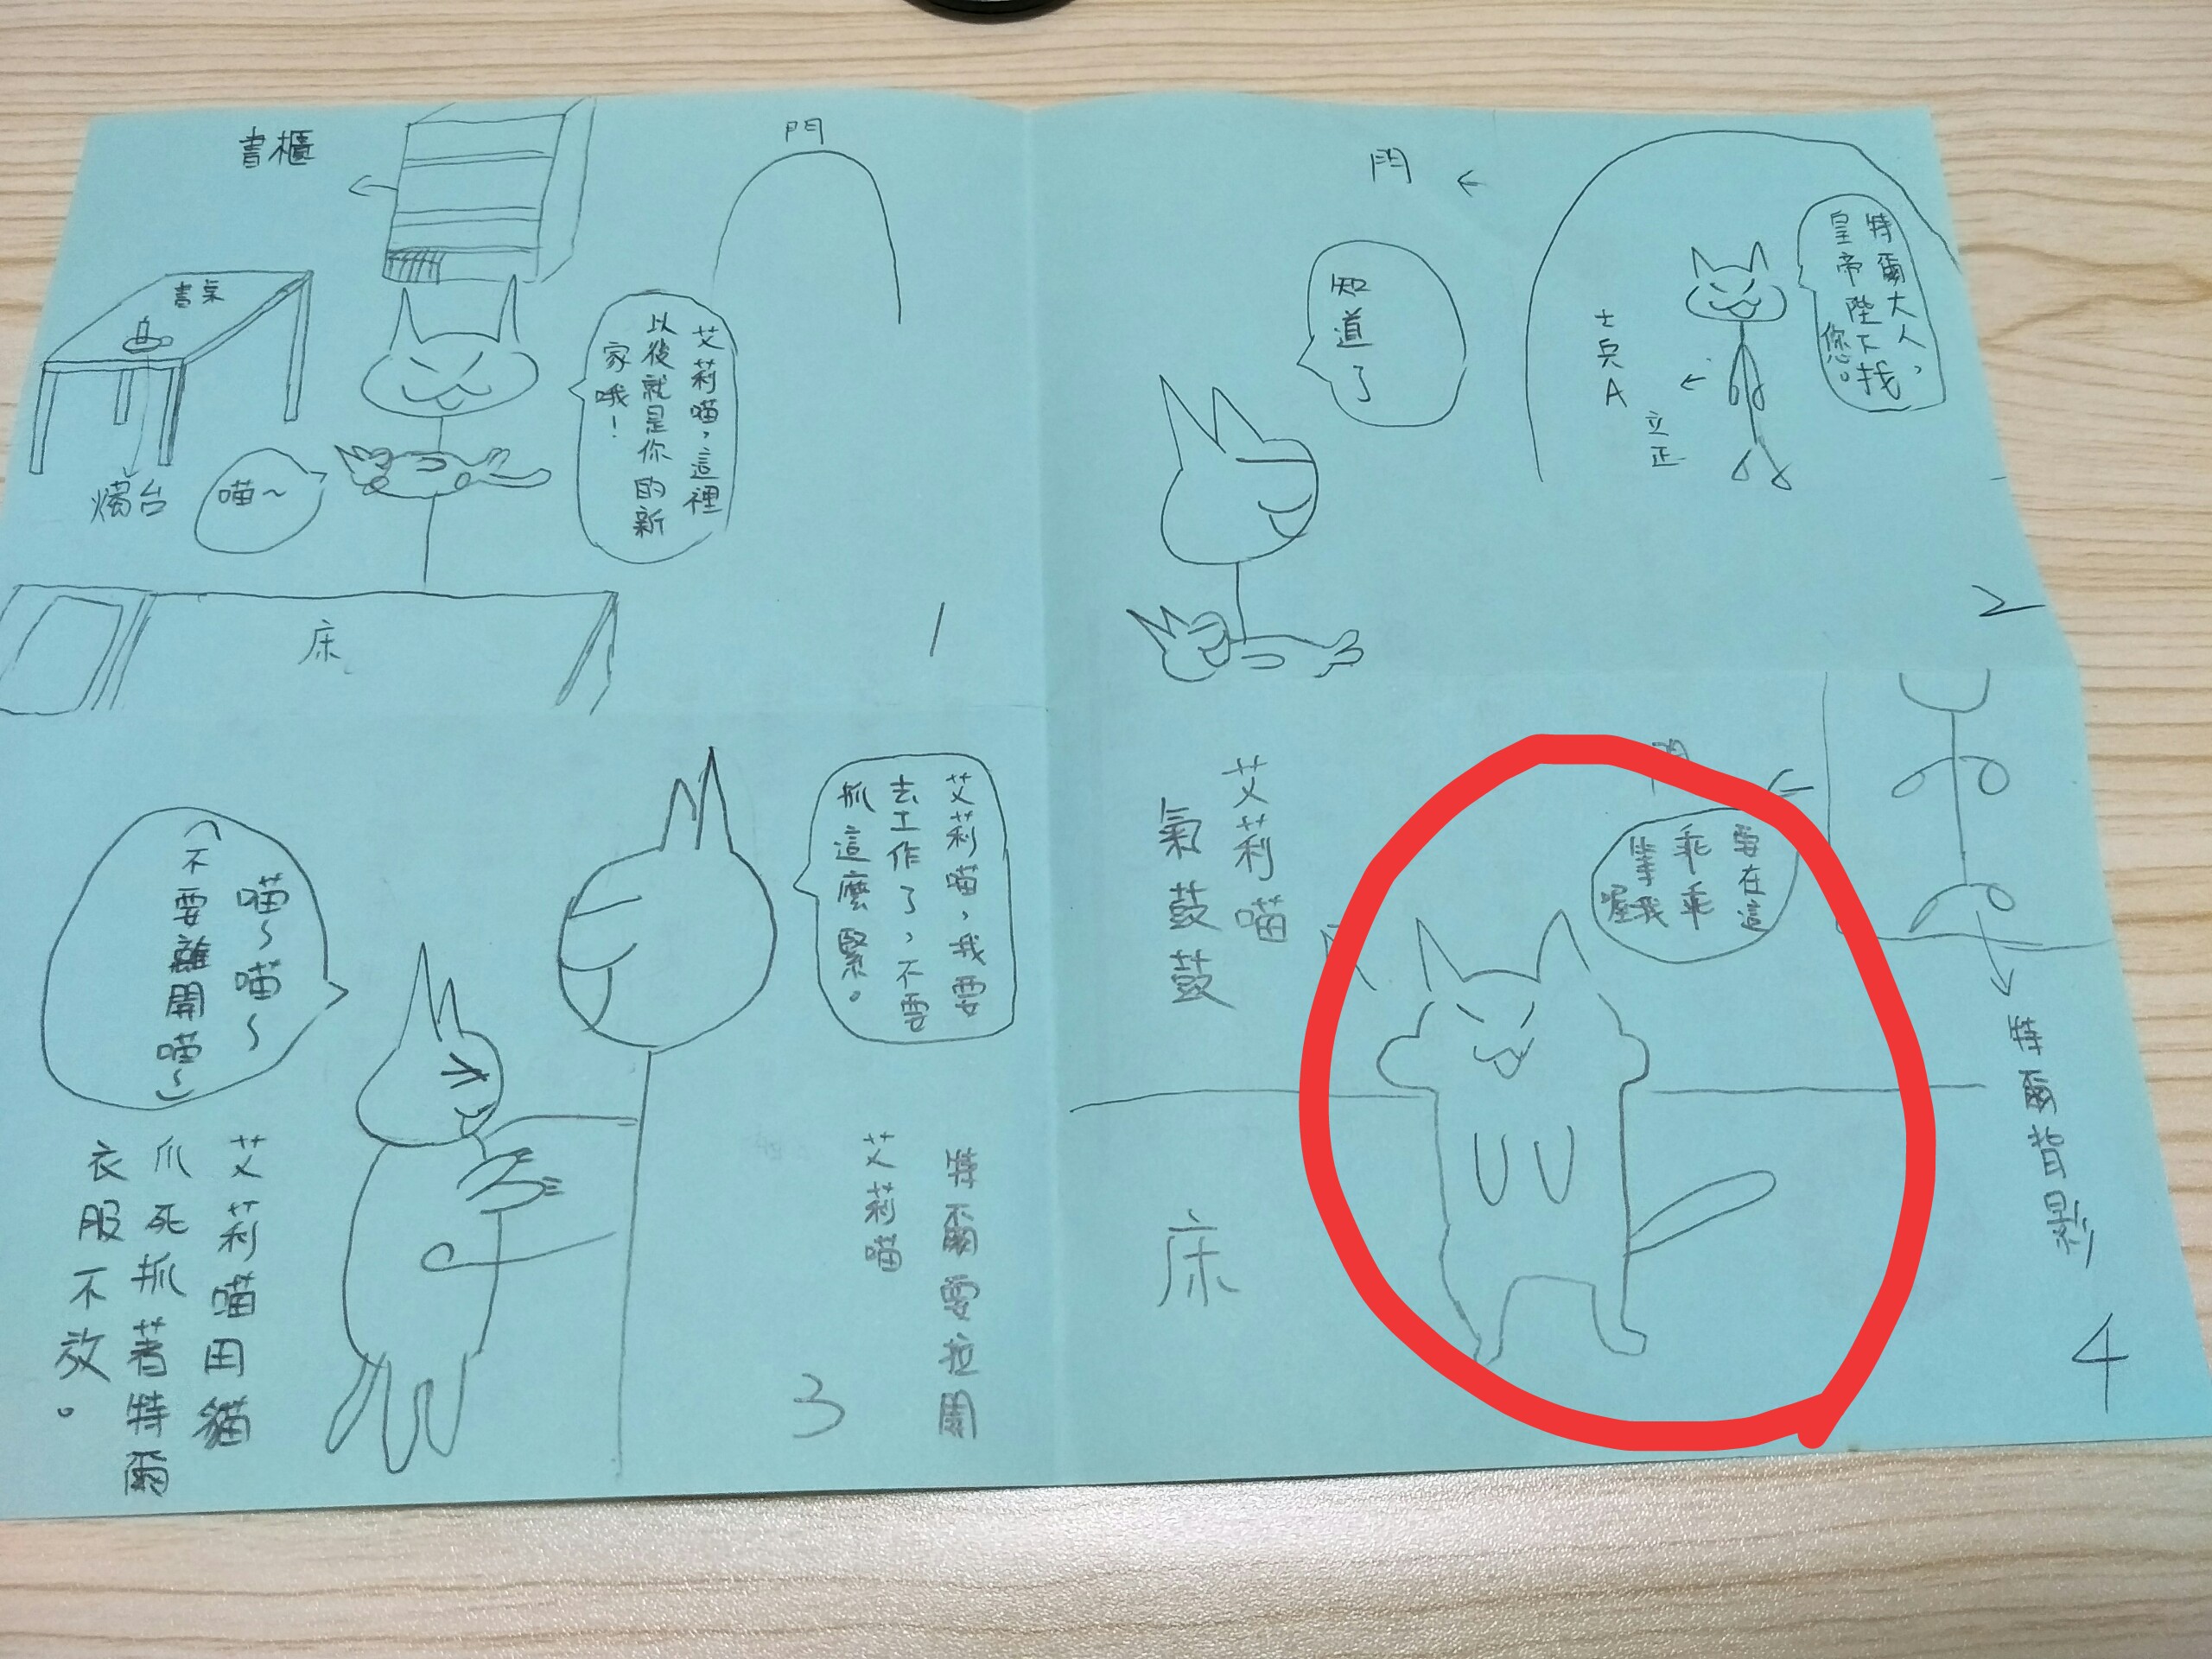 書櫃
門
書桌
燭台
喵～
艾莉喵，這裡
以後就是你的新
家哦！
床
1
門
特爾大人，
皇帝陛下找
您。
知道了
士兵A
立正
2
艾莉喵，我要
去工作了，不要
抓這麼緊。
喵～喵～
（不要離開喵～）
特爾要拉開
艾莉喵
艾莉喵用貓
爪死抓著特爾
衣服不放。
3
門
要在這
乖乖
等我
喔
艾莉喵
氣鼓鼓
特爾背影
床
4